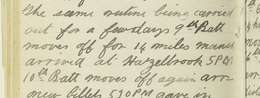 The same rutine being carried
out for a few days 9th Batt
moves off for 14 miles march
arrived at Hazelbrook 5PM
10th Batt moves off again arr
new billets 5.30PM gave in